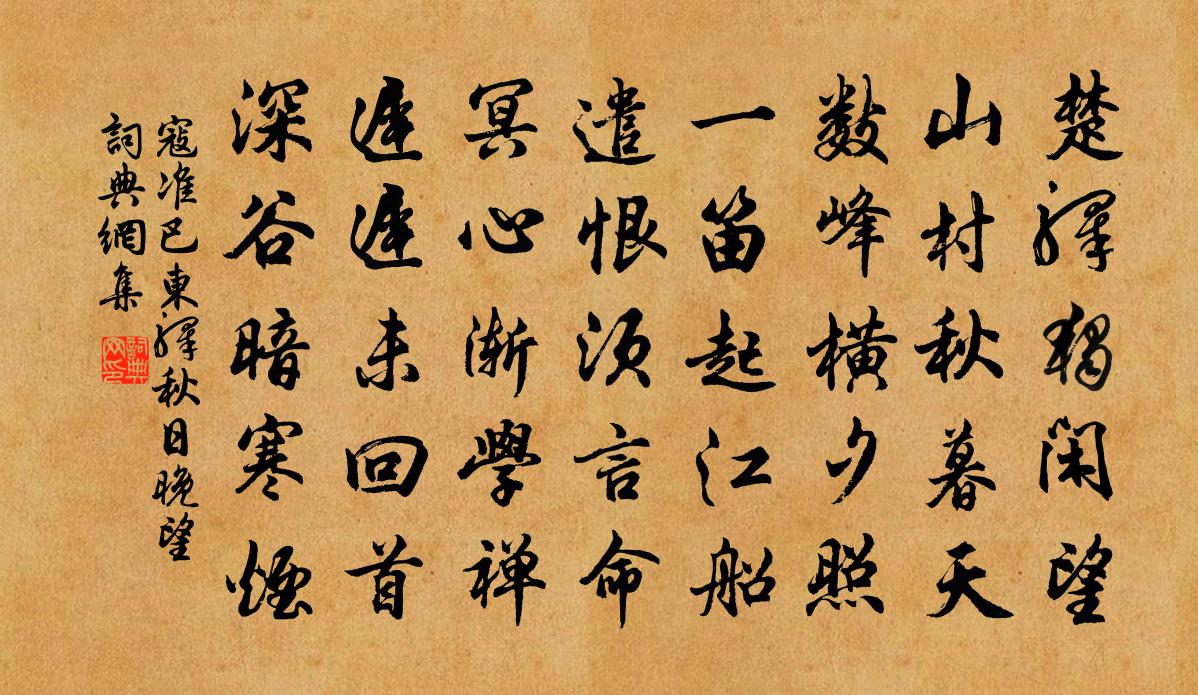 楚驛獨閑望
山村秋暮天
數峰橫夕照
一笛起江船
遣恨須言命
冥心漸學禅
遲遲未回首
深谷暗寒煙
寇准巴東驛秋日晚望
詞典網集
詞典网印